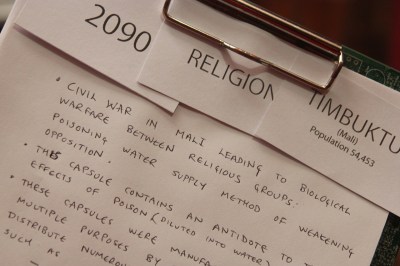 2090
RELIGION
TIMBUKTU
(Mali)
Population 54,453
• CIVIL WAR IN MALI LEADING TO BIOLOGICAL
WARFARE BETWEEN RELIGIOUS GROUPS:
POISONING WATER SUPPLY METHOD OF WEAKENING
OPPOSITION.
• THIS CAPSULE CONTAINS AN ANTIDOTE TO
EFFECTS OF POISON (DILUTED INTO WATER)
• THESE CAPSULES WERE
MULTIPLE PURPOSES BY
DISTRIBUTE NUMEROU
SUCH AS